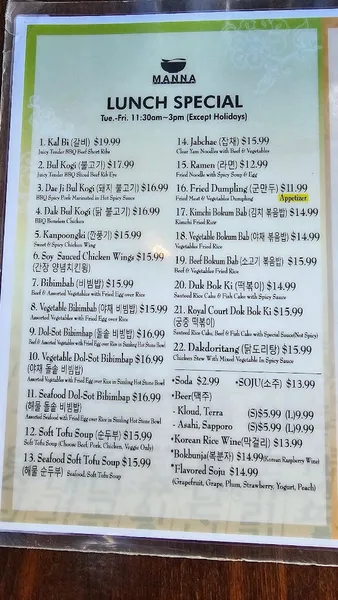 MANNA
LUNCH SPECIAL
Tue.-Fri. 11:30am~3pm (Except Holidays)
1. Kal Bi (갈비) $19.99
Juicy Tender BBQ Beef Short Ribs
2. Bul Kogi (불고기) $17.99
Juicy Tender BBQ Sliced Beef Rib Eye
3. Dae Ji Bul Kogi (돼지 불고기) $16.99
BBQ Spicy Pork Marinated in Hot Spicy Sauce
4. Dak Bul Kogi (닭 불고기) $16.99
BBQ Boneless Chicken
5. Kanpoongki (깐풍기) $15.99
Sweet & Spicy Chicken Wing
6. Soy Sauced Chicken Wings $15.99
(간장 양념치킨윙)
7. Bibimbab (비빔밥) $15.99
Beef & Assorted Vegetables with Fried Egg over Rice
8. Vegetable Bibimbab (야채 비빔밥) $15.99
Assorted Vegetables with Fried Egg over Rice
9. Dol-Sot Bibimbap (돌솥 비빔밥) $16.99
Beef & Assorted Vegetables with Fried Egg over Rice in Sizzling Hot Stone Bowl
10. Vegetable Dol-Sot Bibimbap $16.99
(야채 돌솥 비빔밥)
Assorted Vegetables with Fried Egg over Rice in Sizzling Hot Stone Bowl
11. Seafood Dol-Sot Bibimbap $16.99
(해물 돌솥 비빔밥)
Assorted Seafood with Fried Egg over Rice in Sizzling Hot Stone Bowl
12. Soft Tofu Soup (순두부) $15.99
Soft Tofu Soup (Choose Beef, Pork, Chicken, Veggie Only)
13. Seafood Soft Tofu Soup $15.99
(해물 순두부) Seafood, Soft Tofu Soup
14. Jabchae (잡채) $15.99
Clear Yam Noodles with Beef & Vegetables
15. Ramen (라면) $12.99
Fried Noodle with Spicy Soup & Egg
16. Fried Dumpling (군만두) $11.99
Fried Meat & Vegetable Dumpling Appetizer
17. Kimchi Bokum Bab (김치 볶음밥) $14.99
Kimchi Fried Rice
18. Vegetable Bokum Bab (야채 볶음밥) $14.99
Vegetables Fried Rice
19. Beef Bokum Bab (소고기 볶음밥) $15.99
Beef & Vegetables Fried Rice
20. Duk Bok Ki (떡볶이) $14.99
Sauteed Rice Cake & Fish Cake with Spicy Sauce
21. Royal Court Dok Bok Ki $15.99
(궁중 떡볶이)
Sauteed Rice Cake, Beef & Fish Cake with Special Sauce(Not Spicy)
22. Dakdoritang (닭도리탕) $15.99
Chicken Stew With Mixed Vegetable In Spicy Sauce
•Soda $2.99 •SOJU(소주) $13.99
•Beer(맥주)
- Kloud, Terra (S)$5.99 (L)9.99
- Asahi, Sapporo (S)$5.99 (L)9.99
•Korean Rice Wine(막걸리) $13.99
*Bokbunja(복분자) $14.99(Korean Raspberry Wine)
*Flavored Soju $14.99
(Grapefruit, Grape, Plum, Strawberry, Yogurt, Peach)